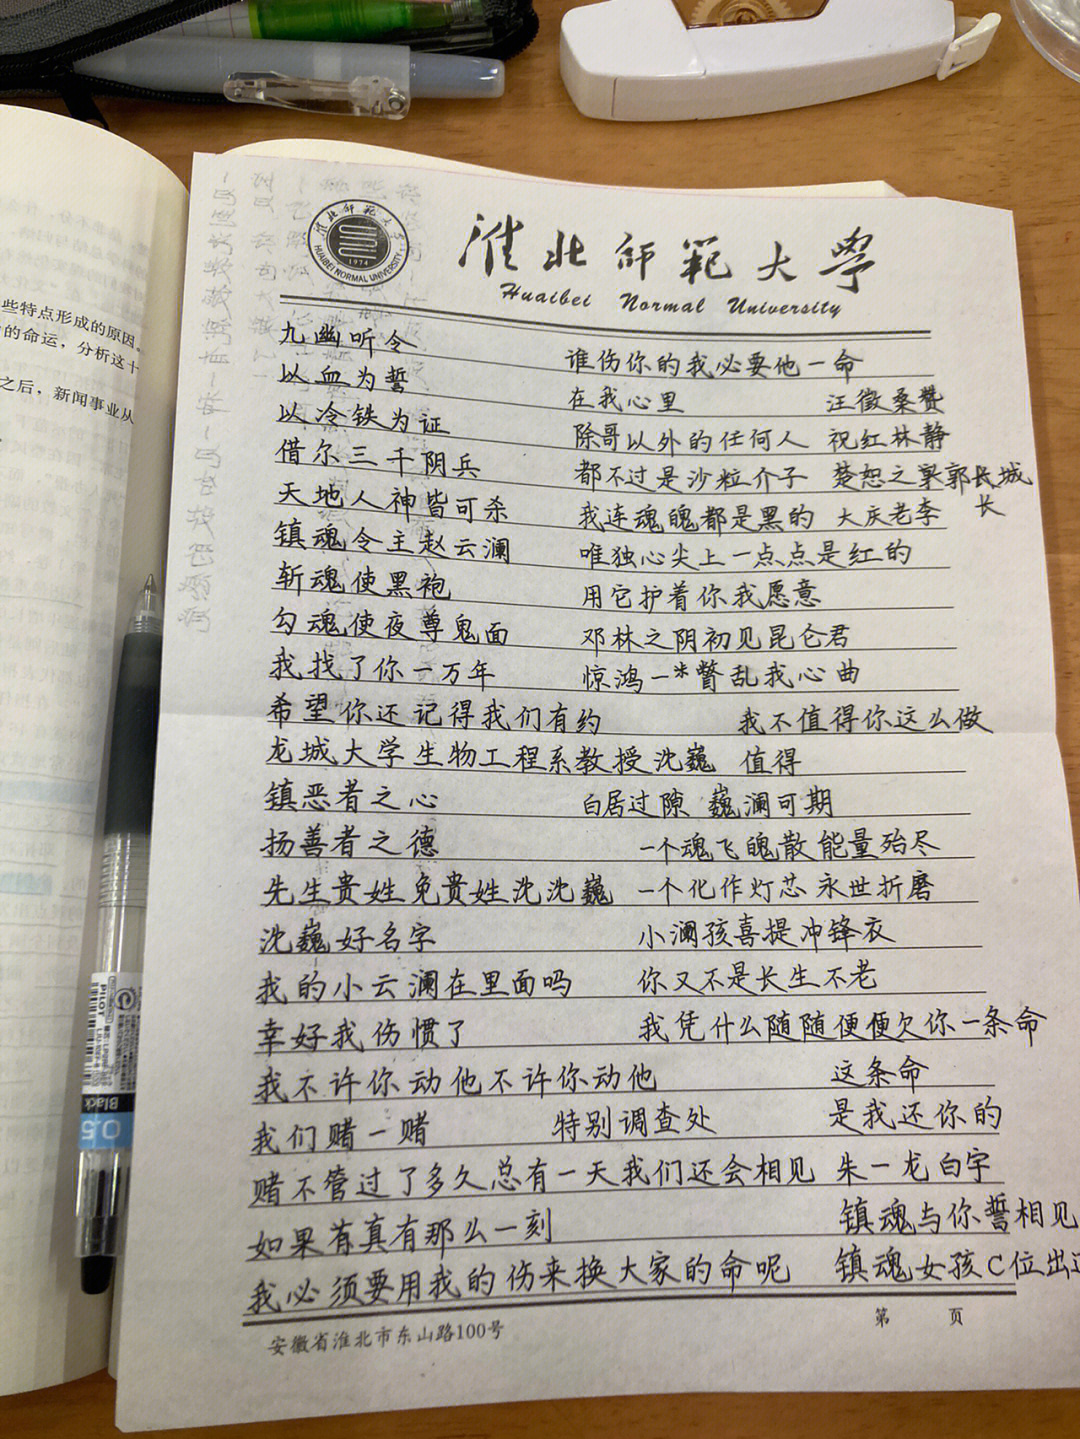 些特点形成的原因。
的命运，分析这十
之后，新闻事业从
淮北师范大学
HUAIBEI NORMAL UNIVERSITY
1974
淮北师範大學
Huaibei Normal University
九幽听令
谁伤你的我必要他一命
以血为誓
在我心里 汪徵桑赞
以冷铁为证
除哥以外的任何人 祝红林静
借尔三千阴兵
都不过是沙粒介子 楚恕之 郭长城
长
天地人神皆可杀
我连魂魄都是黑的 大庆老李
镇魂令主赵云澜
唯独心尖上一点点是红的
斩魂使黑袍
用它护着你我愿意
勾魂使夜尊鬼面
邓林之阴初见昆仑君
我找了你一万年
惊鸿一瞥乱我心曲
希望你还记得我们有约 我不值得你这么做
龙城大学生物工程系教授沈巍 值得
镇恶者之心
白居过隙 巍澜可期
扬善者之德
一个魂飞魄散能量殆尽
先生贵姓免贵姓沈沈巍 一个化作灯芯永世折磨
沈巍好名字 小澜孩喜提冲锋衣
我的小云澜在里面吗 你又不是长生不老
幸好我伤惯了 我凭什么随随便便欠你一条命
我不许你动他不许你动他 这条命
我们赌一赌 特别调查处 是我还你的
赌不管过了多久总有一天我们还会相见 朱一龙白宇
如果有真有那么一刻 镇魂与你誓相见
我必须要用我的伤来换大家的命呢 镇魂女孩C位出
安徽省淮北市东山路100号
第 页
PILOT
Black
0.5